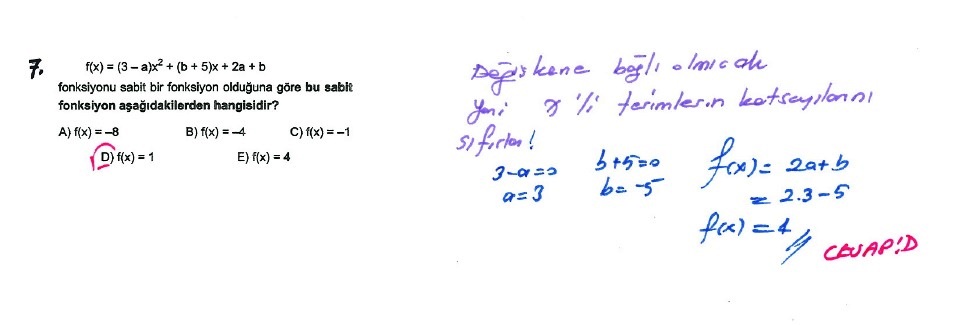 7. f(x) = (3 – a)x² + (b + 5)x + 2a + b
fonksiyonu sabit bir fonksiyon olduğuna göre bu sabit
fonksiyon aşağıdakilerden hangisidir?
A) f(x) = –8 B) f(x) = –4 C) f(x) = –1
D) f(x) = 1 E) f(x) = 4
Değişkene bağlı olmıcak
Yani x 'li terimlerin katsayılarını
sıfırla!
3-a=0 b+5=0 f(x) = 2a+b
a=3 b=-5 = 2.3-5
f(x) = 1
CEVAP:D